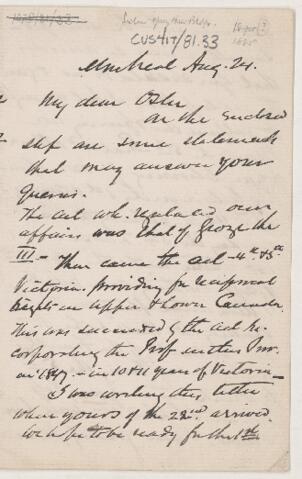 CUS417/81.33
Montreal Aug. 24.
My dear Osler
On the enclosed
slip are some statements
that may answer your
queries.
The act wh. regulated our
affairs was that of George the
III. - Then came the act - 4th & 5th
Victoria providing for reciprocal
rights in Upper & Lower Canada.
This was succeeded by the act in-
corporating the Prof. in this Prov.
in 1847. - in 10 & 11 year of Victoria -
I was writing this letter
when yours of the 22nd arrived.
We hope to be ready for the 1st